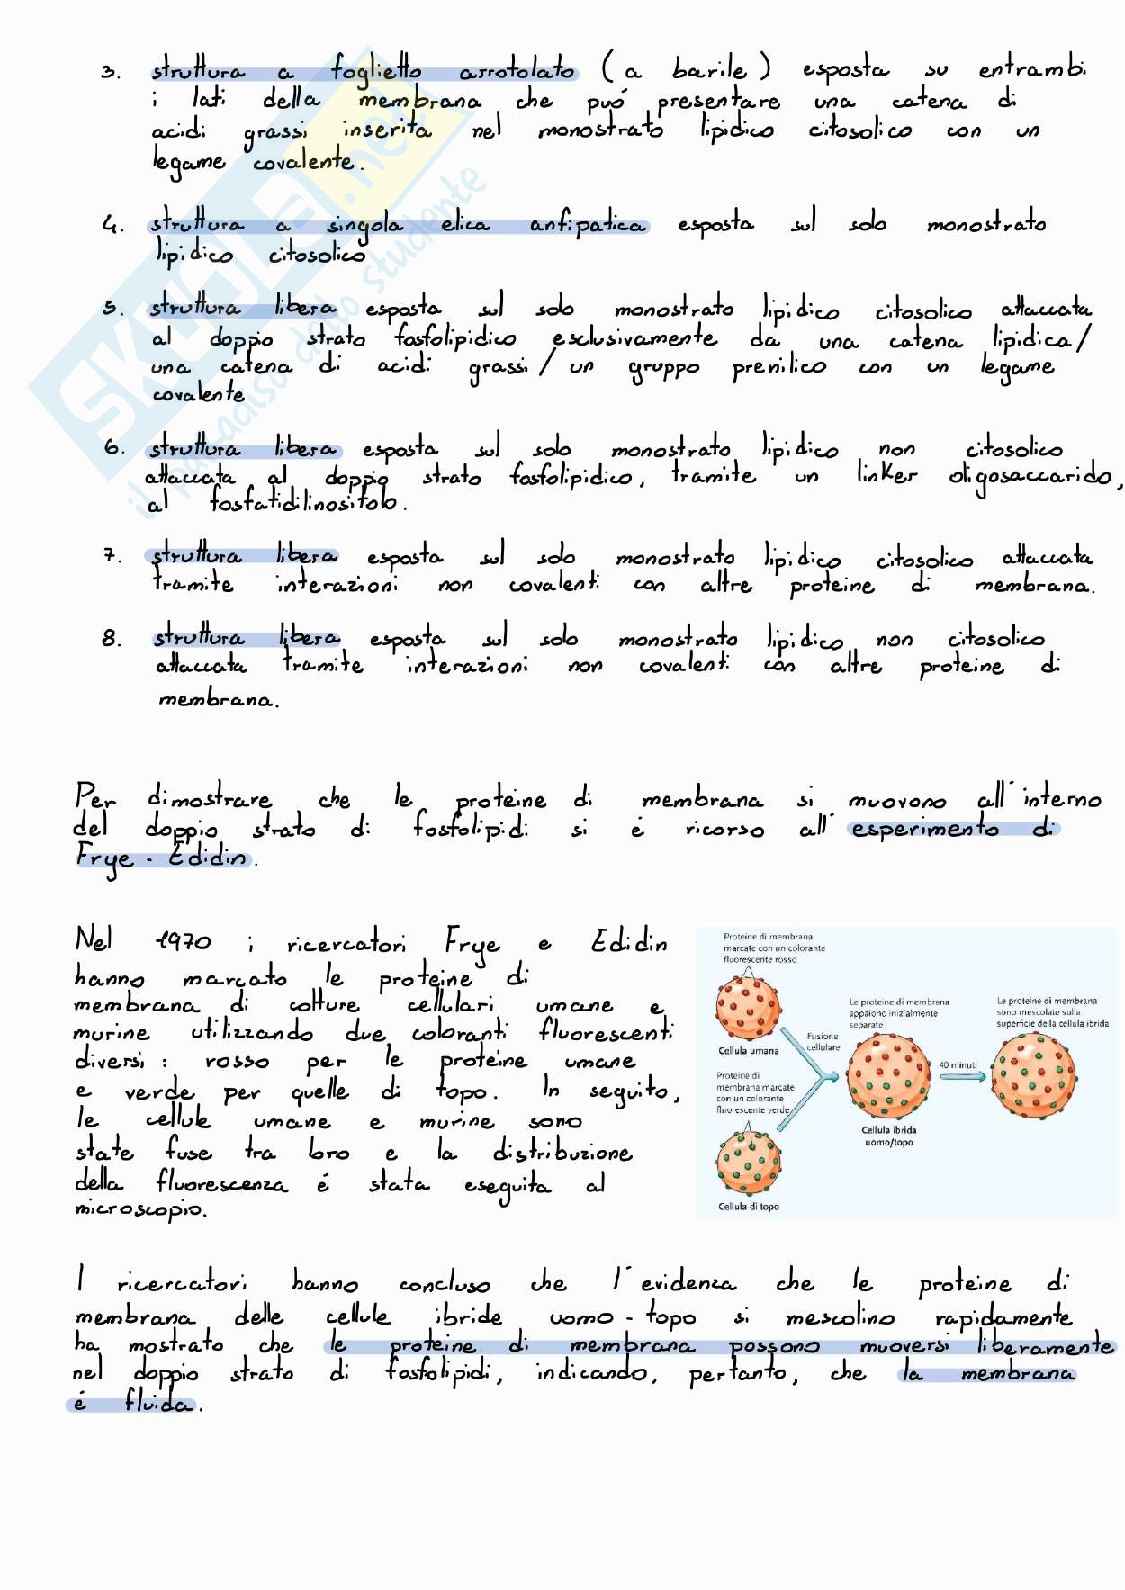 3. struttura a foglietto arrotolato (a barile) esposta su entrambi
i lati della membrana che puó presentare una catena di
acidi grassi inserita nel monostrato lipidico citosolico con un
legame covalente.
4. struttura a singola elica anfipatica esposta sul solo monostrato
lipidico citosolico
5. struttura libera esposta sul solo monostrato lipidico citosolico attaccata
al doppio strato fosfolipidico esclusivamente da una catena lipidica/
una catena di acidi grassi / un gruppo prenilico con un legame
covalente
6. struttura libera esposta sul solo monostrato lipidico non citosolico
attaccata al doppio strato fosfolipidico, tramite un linker oligosaccarido,
al fosfatidilinositolo.
7. struttura libera esposta sul solo monostrato lipidico citosolico attaccata
tramite interazioni non covalenti con altre proteine di membrana.
8. struttura libera esposta sul solo monostrato lipidico non citosolico
attaccata tramite interazioni non covalenti con altre proteine di
membrana.
Per dimostrare che le proteine di membrana si muovono all'interno
del doppio strato di fosfolipidi si é ricorso all' esperimento di
Frye - Edidin.
Nel 1970 i ricercatori Frye e Edidin
hanno marcato le proteine di
membrana di colture cellulari umane e
murine utilizzando due coloranti fluorescenti
diversi : rosso per le proteine umane
e verde per quelle di topo. In seguito,
le cellule umane e murine sono
state fuse tra loro e la distribuzione
della fluorescenza é stata eseguita al
microscopio.
Proteine di membrana
marcate con un colorante
fluorescente rosso
Cellula umana
Proteine di
membrana marcate
con un colorante
fluorescente verde
Cellula di topo
Fusione
cellulare
Le proteine di membrana
appaiono inizialmente
separate
Cellula ibrida
uomo/topo
40 minuti
Le proteine di membrana
sono mescolate sulla
superficie della cellula ibrida
I ricercatori hanno concluso che l'evidenza che le proteine di
membrana delle cellule ibride uomo - topo si mescolino rapidamente
ha mostrato che le proteine di membrana possono muoversi liberamente
nel doppio strato di fosfolipidi, indicando, pertanto, che la membrana
é fluida.
SKUOLA.net
il paradiso dello studente